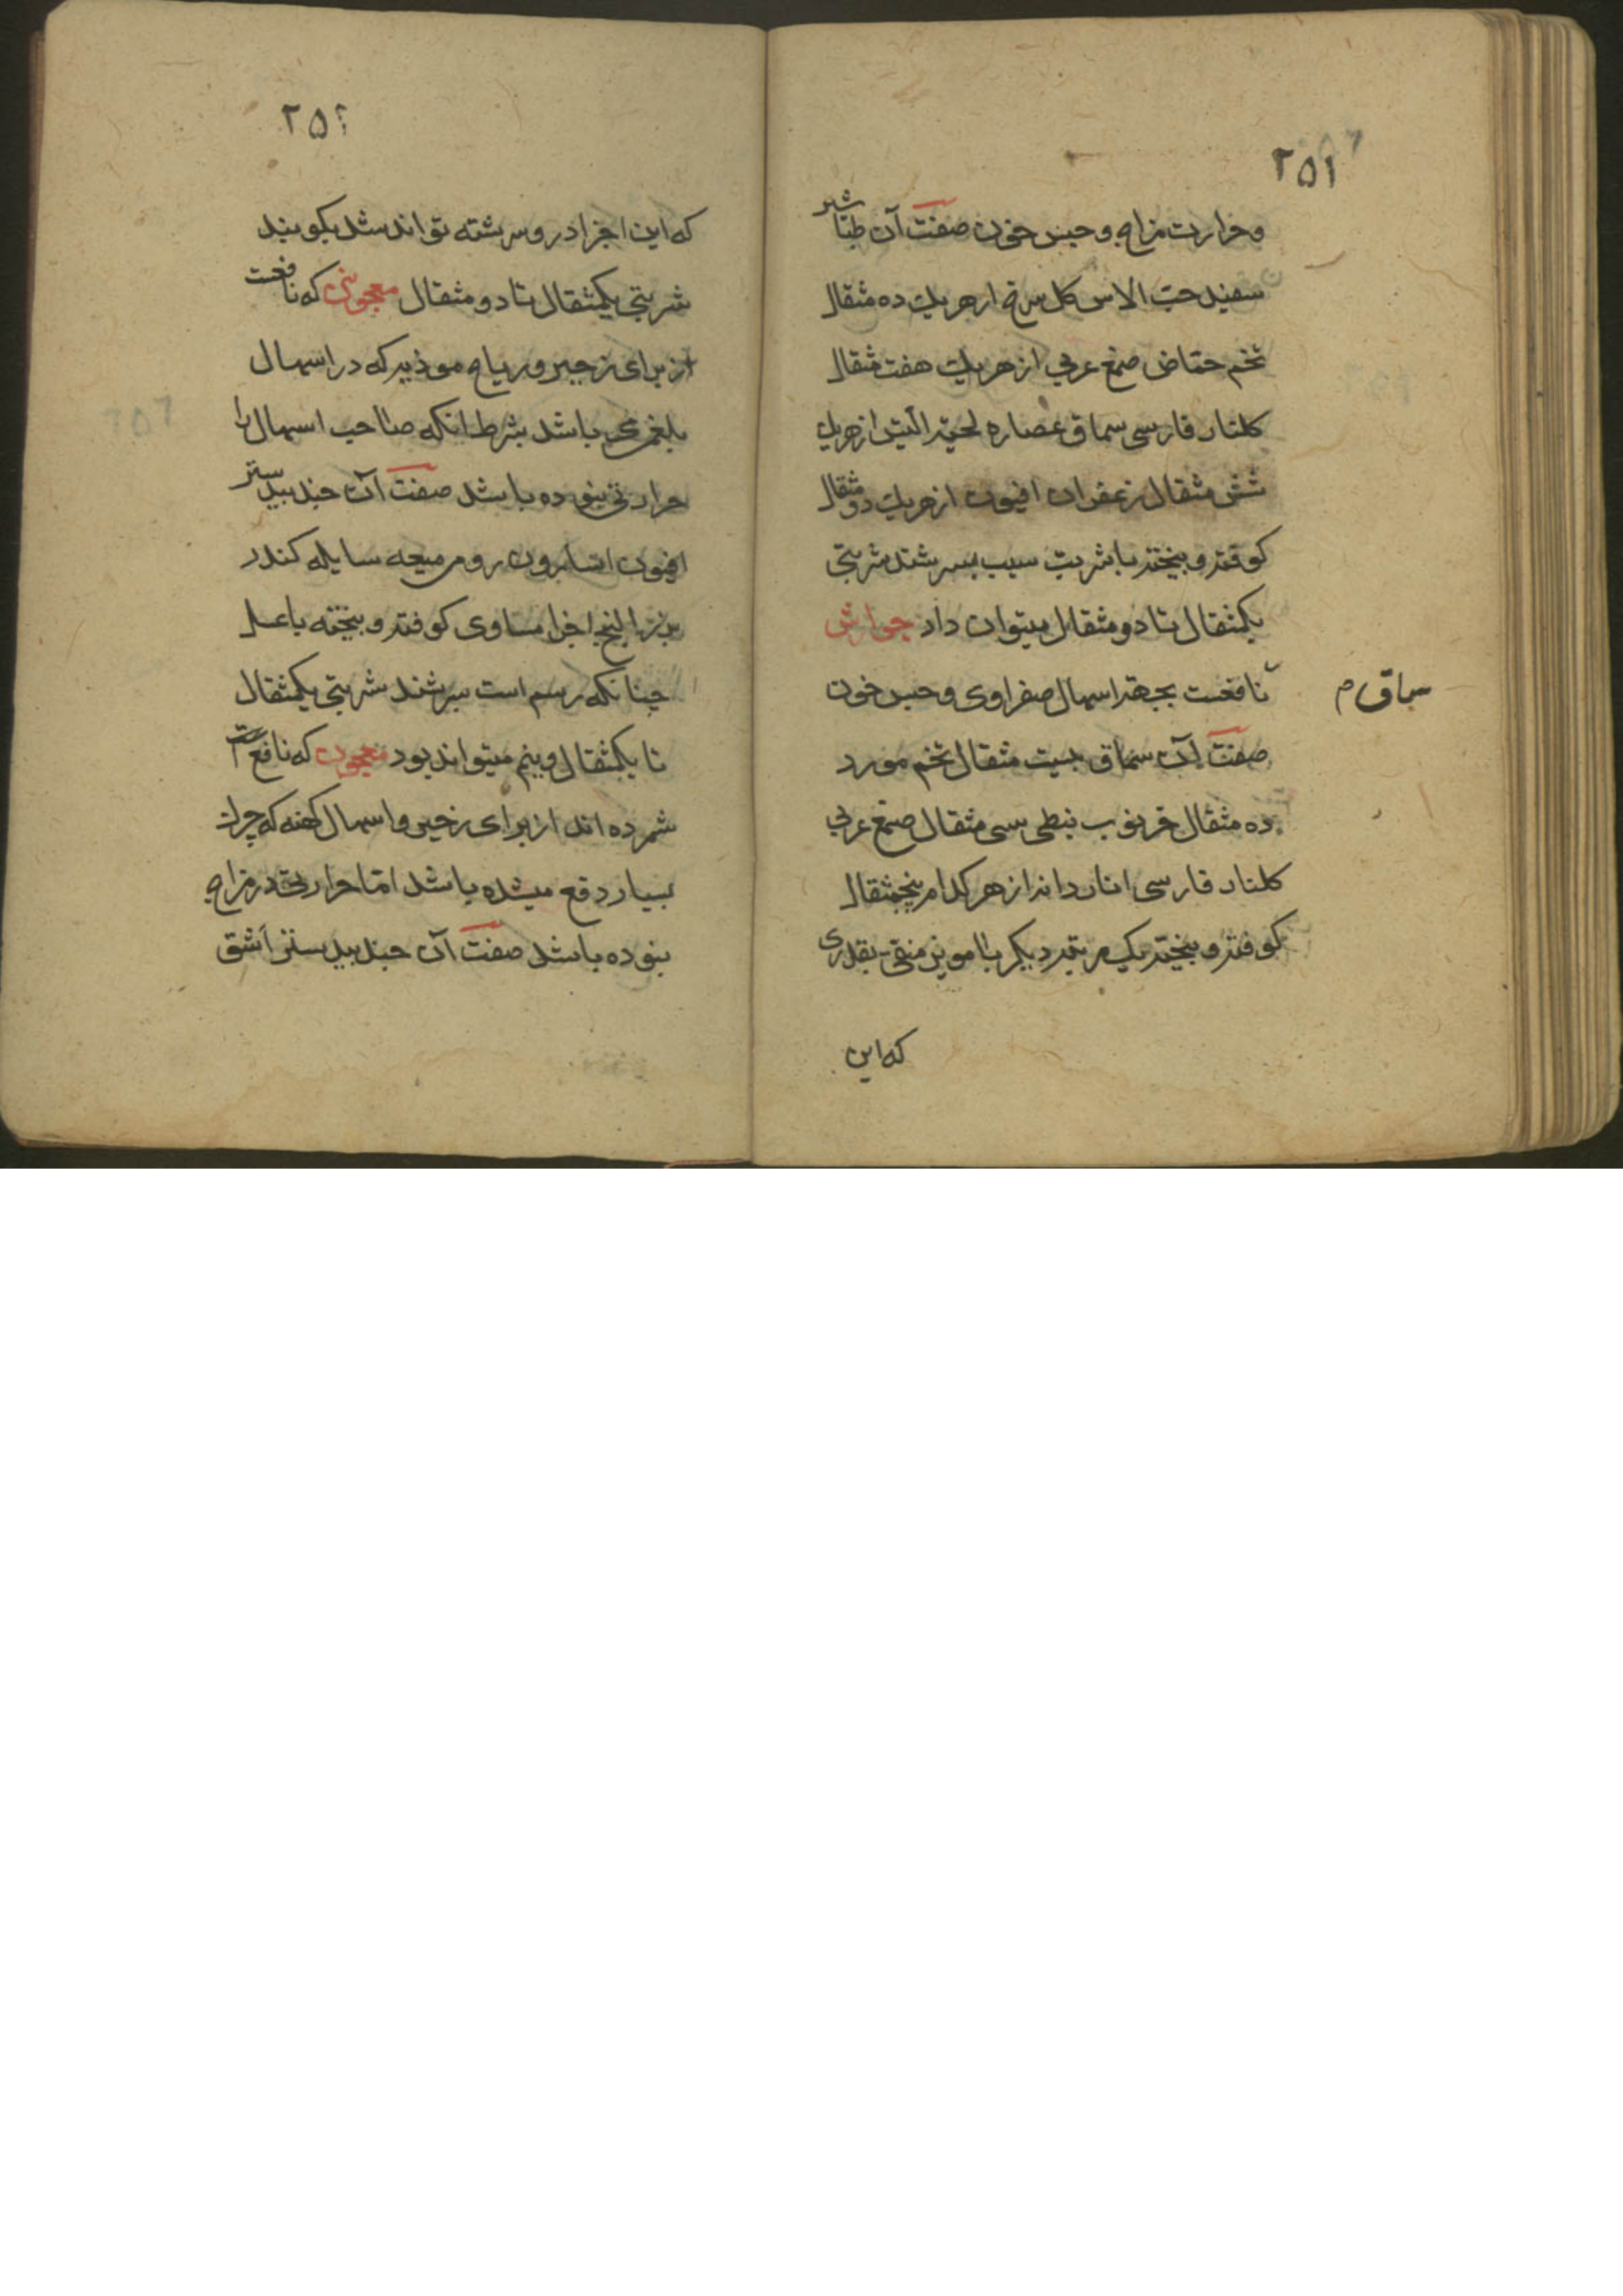 ۲۵۱
وحرارت مزاج وحبس خون صفت آن طباشیر
سفید حب الاس کل سرخ ازهریک ده مثقال
تخم حماض صمغ عربی ازهریک هفت مثقال
کلنار فارسی سماق عصاره لحیة التیس ازهریک
شش مثقال زعفران افیون ازهریک دو مثقال
کوفته وبیخته باشربت سیب بسرشند شربتی
یکمثقال تا دو مثقال میتوان داد جوارش
سماق م
نافعست بجهة اسهال صفراوی وحبس خون
صفت آن سماق بیست مثقال تخم مورد
ده مثقال خرنوب نبطی سی مثقال صمغ عربی
کلنار فارسی انار دانه ازهر کدام پنجمثقال
کوفته وبیخته یک مرتبه دیکر با مویز منقی بقدری
که این
۲۵۲
که این اجزا درو سرشته تواند شد بکوبند
شربتی یکمثقال تا دو مثقال معجونی که نافعست
از برای زحیر وریاح موذیه که در اسهال
بلغمی باشد بشرط انکه صاحب اسهال را
حرارتی نبوده باشد صفت آن جندبیدستر
افیون اسارون رومی میعه سایله کندر
بزرالبنج اجزا مساوی کوفته وبیخته باعسل
چنانکه رسم است سرشند شربتی یکمثقال
تا یکمثقال ونیم میتواند بود معجون که نافع
شمرده اند از برای زحیر واسهال کهنه که چرک
بسیار دفع میشده باشد امّا حرارتی در مزاج
نبوده باشد صفت آن جندبیدستر اشق